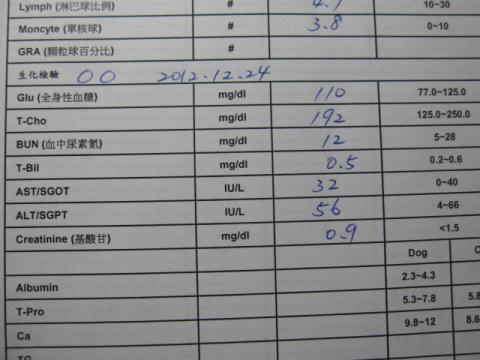 Lymph (淋巴球比例) # 4.7 10~30
Moncyte (單核球) # 3.8 0~10
GRA (顆粒球百分比) #
生化檢驗 OO 2012.12.24
Glu (全身性血糖) mg/dl 110 77.0~125.0
T-Cho mg/dl 192 125.0~250.0
BUN (血中尿素氮) mg/dl 12 5~28
T-Bil mg/dl 0.5 0.2~0.6
AST/SGOT IU/L 32 0~40
ALT/SGPT IU/L 56 4~66
Creatinine (基酸甘) mg/dl 0.9 <1.5
Dog
Albumin 2.3~4.3
T-Pro 5.3~7.8 5.8
Ca 9.8~12 8.6